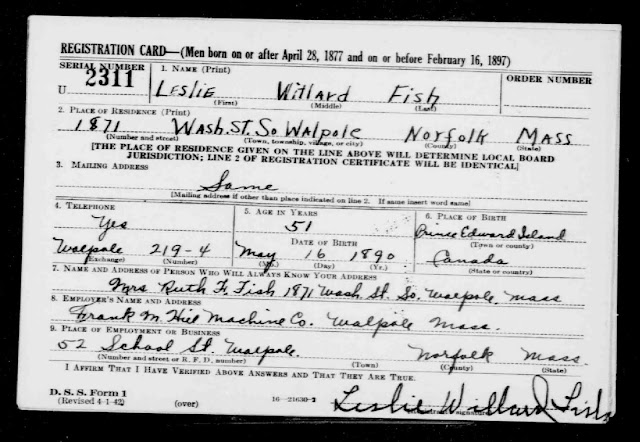 REGISTRATION CARD—(Men born on or after April 28, 1877 and on or before February 16, 1897)
SERIAL NUMBER
1. NAME (Print)
ORDER NUMBER
U 2311
LESLIE Willard Fish
(First) (Middle) (Last)
2. PLACE OF RESIDENCE (Print)
1871 Wash. St. So Walpole Norfolk Mass
(Number and street) (Town, township, village, or city) (County) (State)
[THE PLACE OF RESIDENCE GIVEN ON THE LINE ABOVE WILL DETERMINE LOCAL BOARD
JURISDICTION; LINE 2 OF REGISTRATION CERTIFICATE WILL BE IDENTICAL]
3. MAILING ADDRESS
Same
[Mailing address if other than place indicated on line 2. If same insert word same]
4. TELEPHONE
5. AGE IN YEARS
6. PLACE OF BIRTH
Yes
51
Prince Edward Island
DATE OF BIRTH
(Town or county)
Walpole 219-4
May 16 1890
Canada
(Exchange) (Number)
(Mo.) (Day) (Yr.)
(State or country)
7. NAME AND ADDRESS OF PERSON WHO WILL ALWAYS KNOW YOUR ADDRESS
Mrs. Ruth F. Fish 1871 Wash. St. So. Walpole Mass
8. EMPLOYER'S NAME AND ADDRESS
Frank M. Hill Machine Co. Walpole Mass.
9. PLACE OF EMPLOYMENT OR BUSINESS
52 School St. Walpole. Norfolk Mass
(Number and street or R. F. D. number) (Town) (County) (State)
I AFFIRM THAT I HAVE VERIFIED ABOVE ANSWERS AND THAT THEY ARE TRUE.
D. S. S. Form 1
(Revised 4-1-42) (over) 16—21630-2
Leslie Willard Fish
(Registrant's signature)